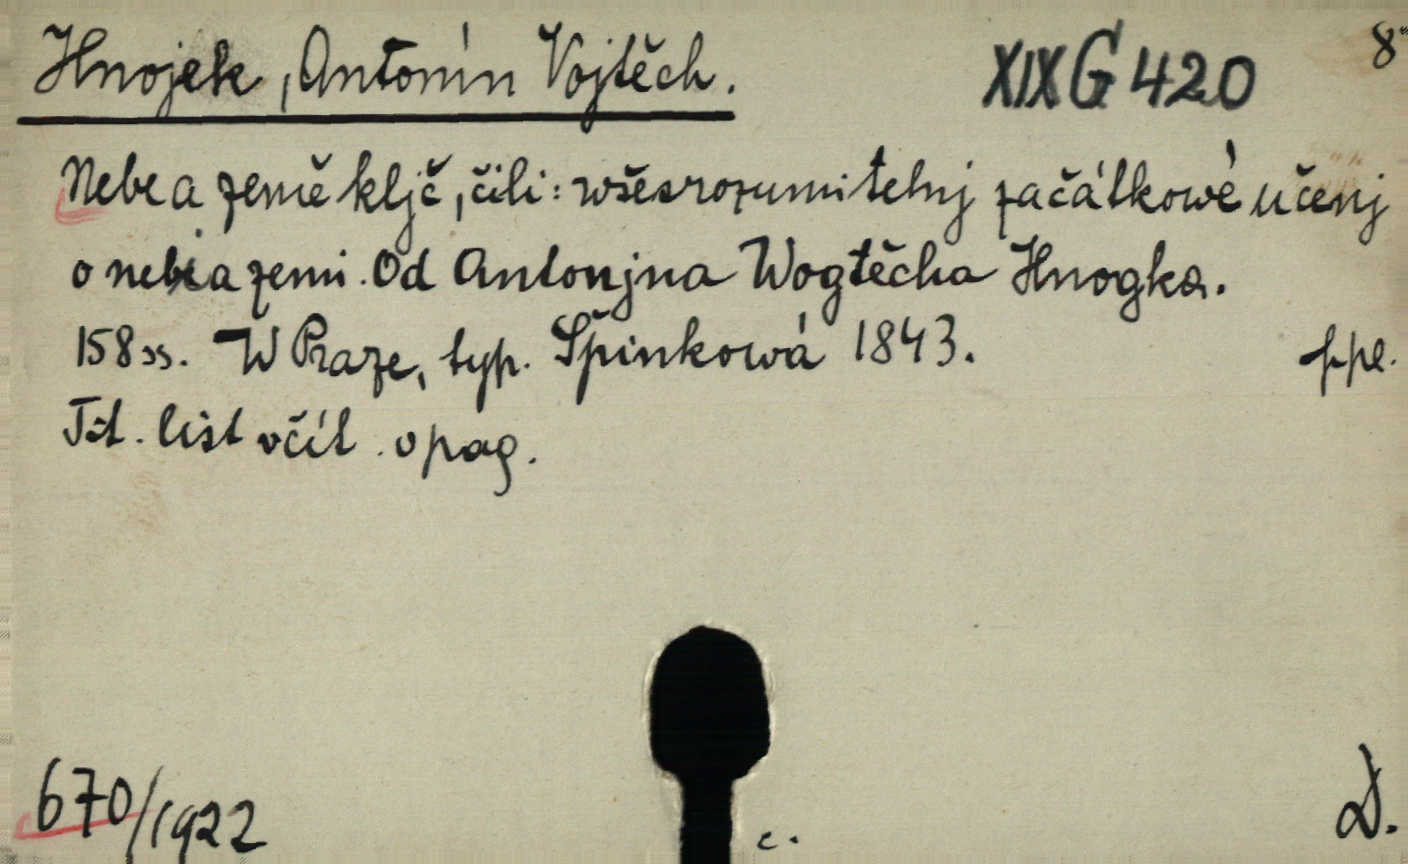 Hnojek, Antonín Vojtěch. XIX G 420 8°
Nebe a země kljč, čili: wšesrozumitelnj začátkowé učenj
o nebi a zemi. Od Antonjna Wogtěcha Hnogka.
158 ss. W Praze, typ. Špinkowá 1843. ppl.
Tit. list včít. v pag.
670/1922 c. D.